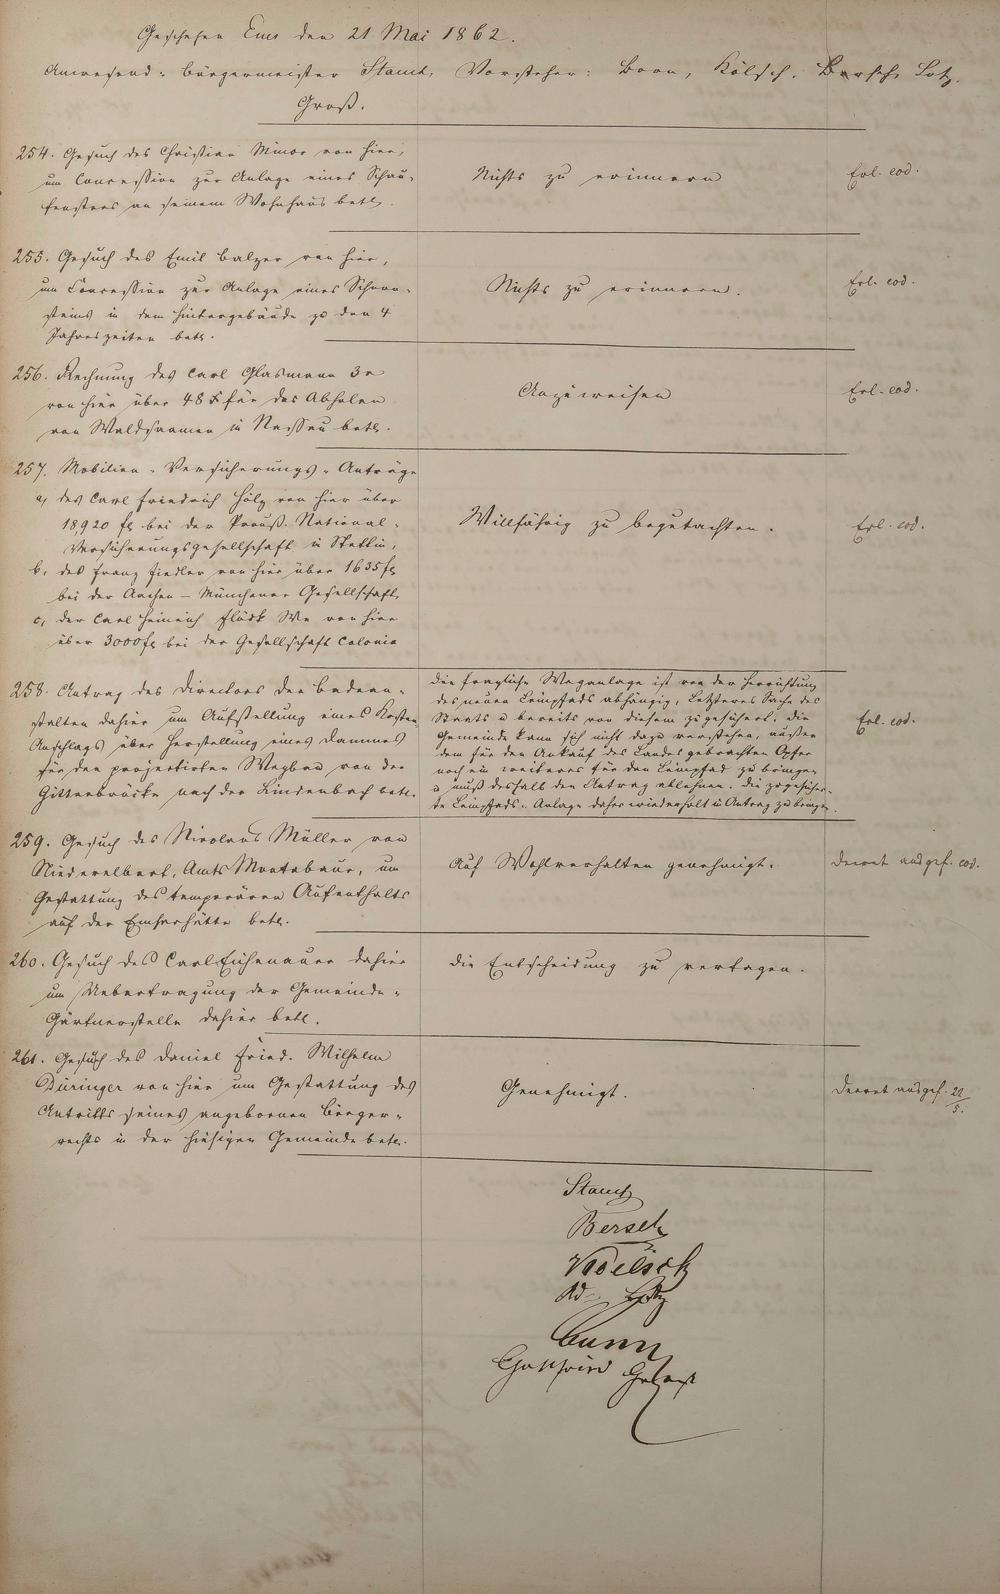 Geschehen Ems den 21 Mai 1862.
Anwesend: Bürgermeister Stamt, Vorsteher: Born, Kölsch, Bersch, Lotz.
Groß.
254. Gesuch des Christian Minor von hier,
um Concession zur Anlage eines Schau-
fensters an seinem Wohnhaus betr.
Nichts zu erinnern
Erl. eod.
255. Gesuch des Emil Balzer von hier,
um Concession zur Anlage eines Schorn-
steins in dem Hintergebäude zu den 4
Jahreszeiten betr.
Nichts zu erinnern.
Erl. eod.
256. Rechnung des Carl Glasmann 3r
von hier über 48 x für das Abholen
von Waldsaamen in Nassau betr.
Anzuweisen
Erl. eod.
257. Mobilien-Versicherungs-Anträge
a, des Carl Friedrich Hölz von hier über
18,920 fl bei der Preuß. National-
Versicherungsgesellschaft in Stettin,
b, des Franz Fiedler von hier über 1635 fl
bei der Aachen-Münchener Gesellschaft,
c, der Carl Heinrich Flöck We von hier
über 3000 fl bei der Gesellschaft Colonia
Willfährig zu begutachten.
Erl. eod.
258. Antrag des Directors der Badean-
stalten dahier um Aufstellung eines Kosten
Anschlags über Herstellung eines Dammes
für den projectirten Wegbau von der
Gitterbrücke nach der Lindenbach betr.
die fragliche Weganlage ist von der Herrichtung
des neuen Leinpfads abhängig, Letzteres Sache des
Staats u bereits von diesem zugesichert. die
Gemeinde kann sich nicht dazu verstehen, außer
dem für den Ankauf des Landes gebrachten Opfer
noch ein weiteres für den Leinpfad zu bringen
u muß deshalb den Antrag ablehnen. die zugesicher-
te Leinpfads-Anlage daher wiederholt in Antrag zu bringen.
Erl. eod.
259. Gesuch des Nicolaus Müller von
Niederelbert, Amts Montabaur, um
Gestattung des temporären Aufenthalts
auf der Emserhütte betr.
Auf Wohlverhalten genehmigt.
Decret ausgef. eod.
260. Gesuch des Carl Eichenauer dahier
um Uebertragung der Gemeinde-
Gärtnerstelle dahier betr.
die Entscheidung zu vertagen.
261. Gesuch des Daniel Fried. Wilhelm
Düringer von hier um Gestattung des
Antritts seines angebornen Bürger-
rechts in der hiesigen Gemeinde betr.
Genehmigt.
Decret ausgef. 22/5.
Stamt
Bersch
Koelsch
Ad. Lotz
Gottfried